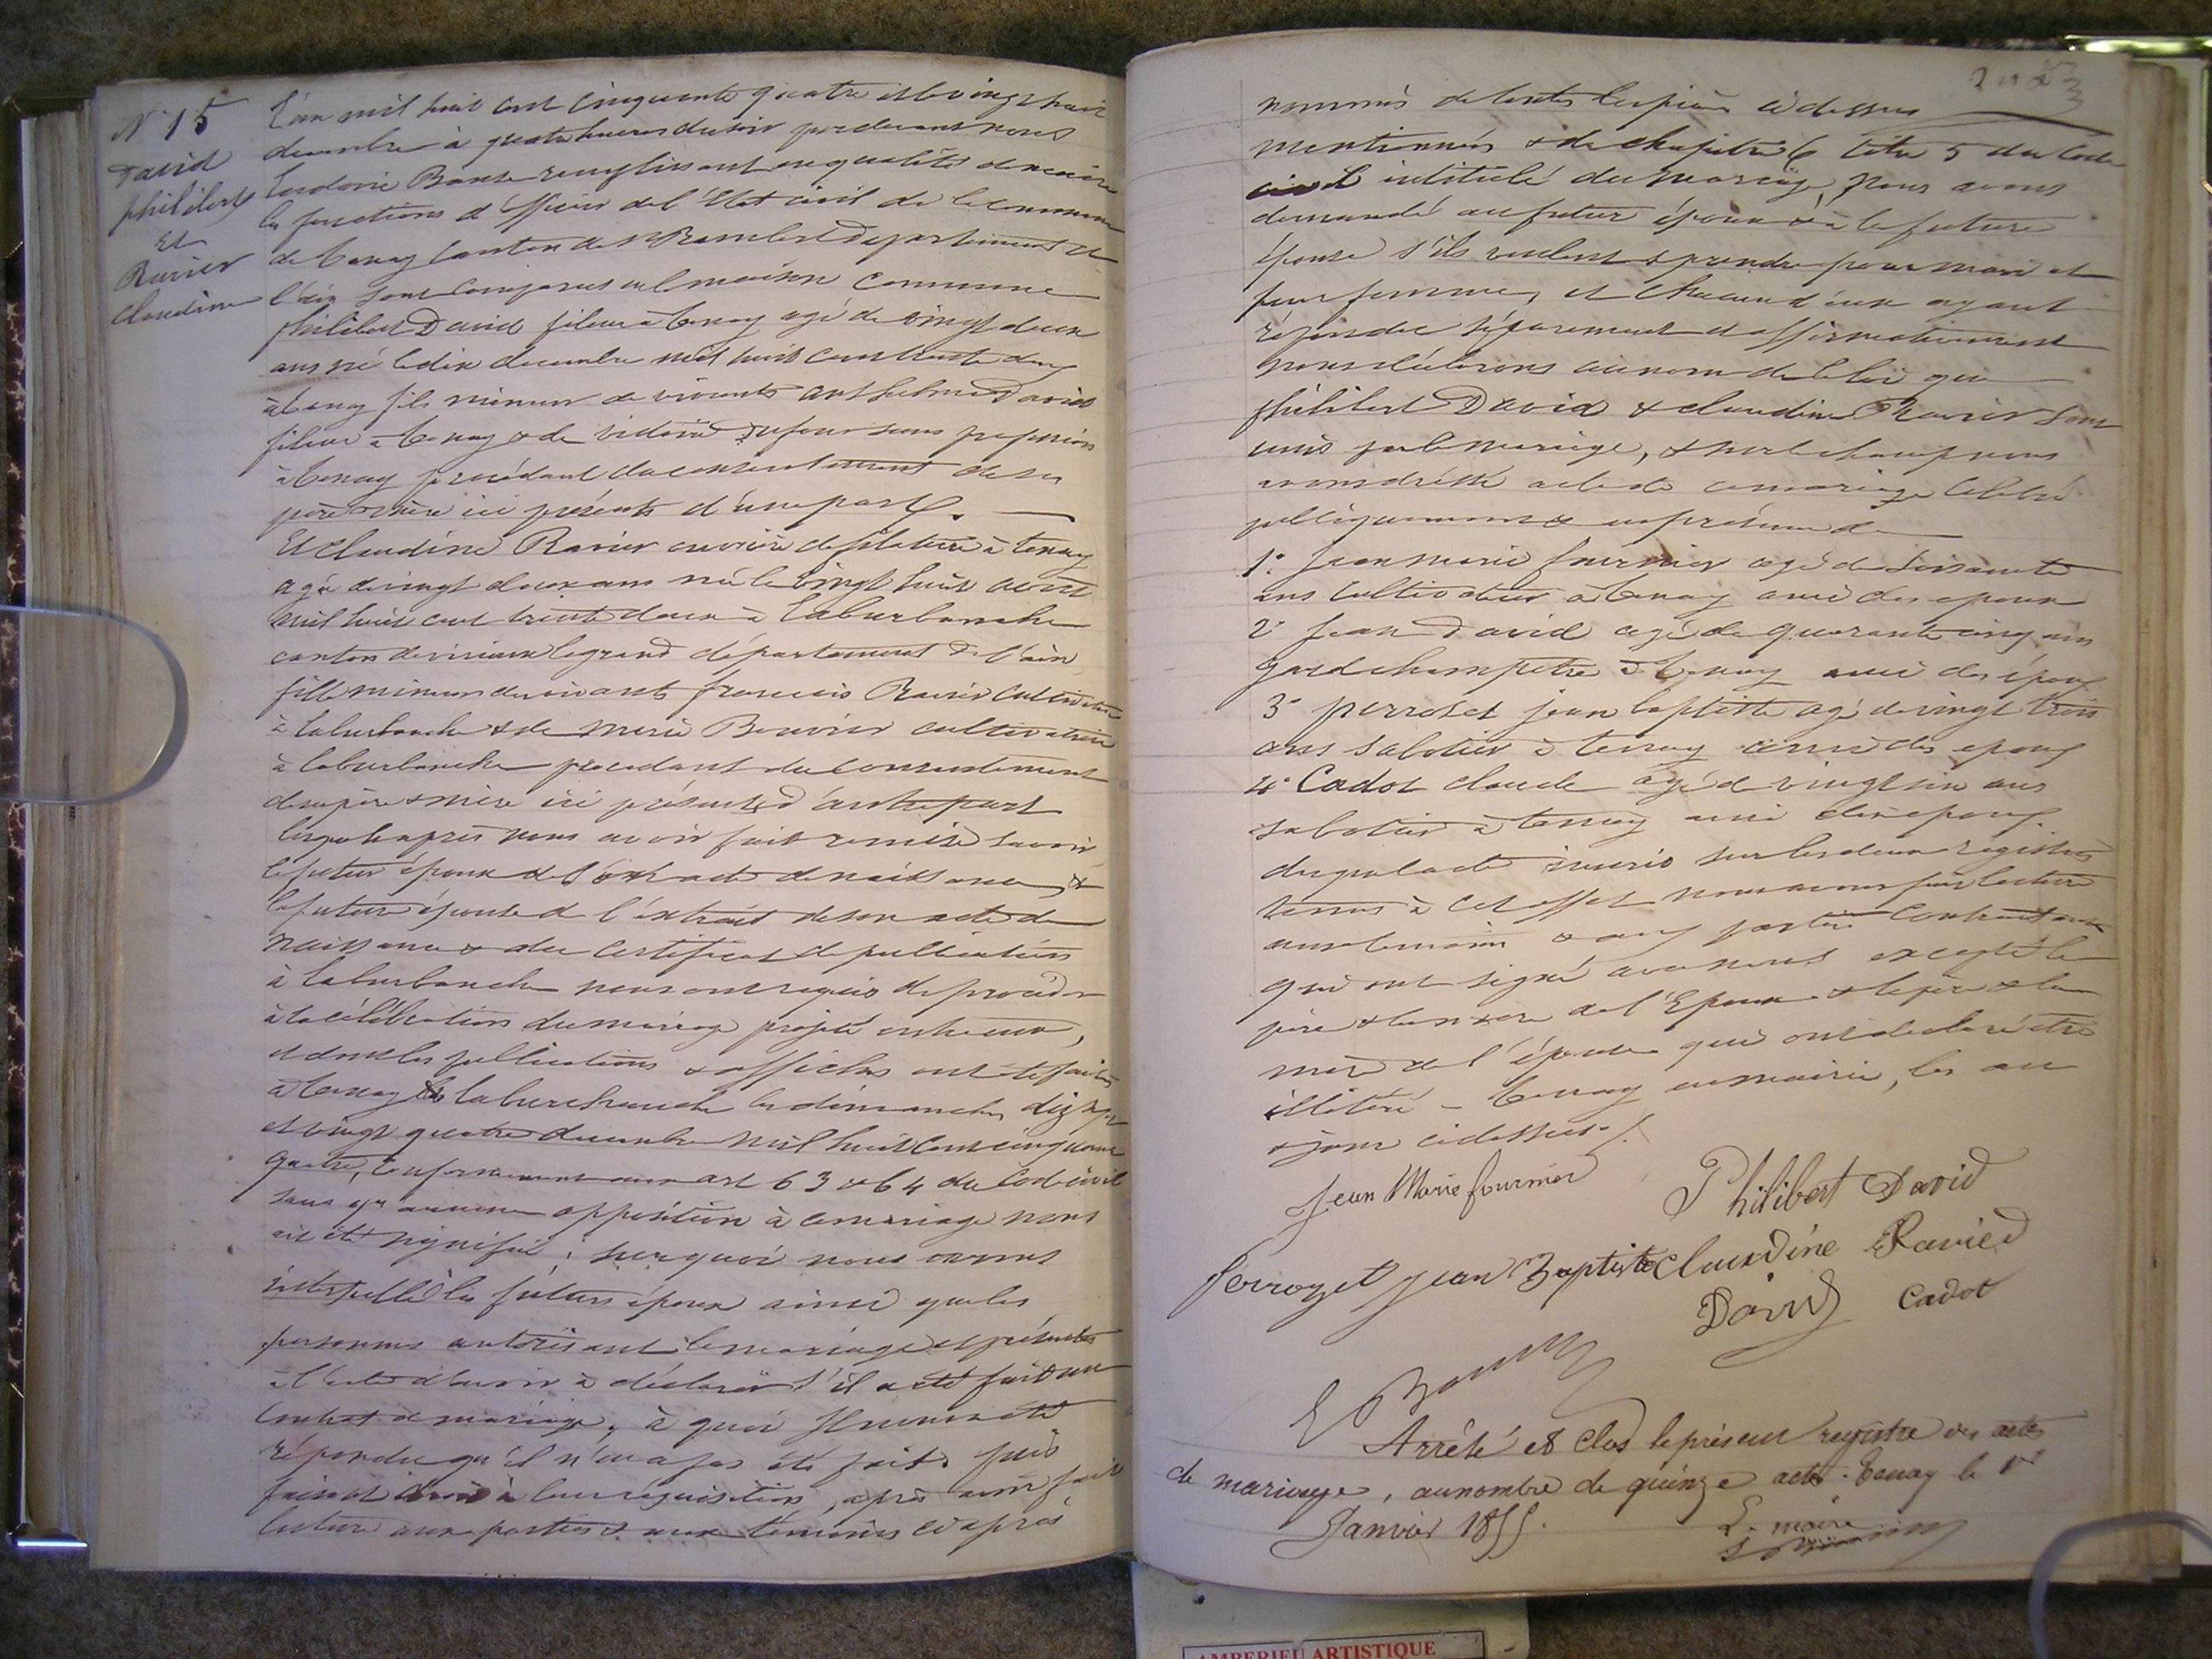 N° 15
David
philibert
Et
Ravier
claudine
L'an mil huit cent cinquante quatre et le vingt huit
decembre à quatre heures du soir par devant nous
Bonse remplissant en qualité de maire
les fonctions d'officier de l'Etat civil de la commune
de tenay canton de St Rambert département de
l'ain sont comparus en la maison commune
philibert David fileur à tenay agé de vingt deux
ans né le dix decembre mil huit cent trente deux
à tenay fils mineur de vivants anthelme David
fileur à tenay & de victoire dufour sans profession
à tenay procédant du consentement de ses
père & mère ici présents d'une part.
Et claudine Ravier ouvrière de filature à tenay
agée de vingt deux ans née le vingt huit août
mil huit cent trente deux à laburbanche
canton de virieux le grand département de l'ain
fille mineure de vivants francois Ravier cultivateur
à laburbanche & de marie Bouvier cultivatrice
à laburbanche procedant du consentement
de ses père & mère ici présents d'autre part
lesquels après nous avoir fait remise savoir
le futur époux de l'extrait de naissance, &
la future épouse de l'extrait de son acte de
naissance & du certificat de publication
à laburbanche nous ont requis de procéder
à la célébration du mariage projeté entre eux,
et dont les publications & affiches ont été faites
à tenay & à laburbanche les dimanches dix sept
et vingt quatre decembre mil huit cent cinquante
quatre, conformement aux art 63 & 64 du code civil
sans qu'aucune opposition à ce mariage nous
ait été signifiée ; sur quoi nous avons
interpellé les futurs époux ainsi que les
personnes autorisant le mariage et présentes
à l'acte d'avoir à déclarer s'il a été fait un
contrat de mariage, à quoi il nous a été
répondu qu'il n'en a pas été fait. puis
faisant droit à leur réquisition, après avoir fait
lecture aux parties & aux témoins ci après
nommés de toutes les pièces ci dessus
mentionnées & du chapitre 6 titre 5 du Code
civil intitulé du mariage, nous avons
demandé au futur époux & à la future
épouse s'ils veulent se prendre pour mari et
pour femme, et chacun d'eux ayant
répondu séparement et affirmativement
nous déclarons au nom de la loi que
philibert David & claudine Ravier sont
unis par le mariage, & sur le champ nous
avons dréssé acte de ce mariage célébré
publiquement & en présence de
1° Jean marie fournier agé de soixante
ans cultivateur à tenay ami des epoux
2° Jean David agé de quarante cinq ans
gardechampetre à tenay ami des époux
3° perroset jean baptiste agé de vingt trois
ans sabotier à tenay ami des epoux
4° Cadot claude agé de vingt six ans
sabotier à tenay ami des epoux
duquel acte inscrit sur les deux registres
tenus à cet effet nous avons fait lecture
aux temoins & aux parties contractantes
qui ont signé avec nous excepté le
père & la mère de l'Epoux & le père & la
mère de l'épouse qui ont declaré être
illitéré - tenay en mairie, les an
& jour ci dessus /.
Jean Marie fournier
Philibert David
Perrozet Jean Baptiste Claudine Ravied
David Cadot
Arrêté et clos le présent registre des actes
de mariage, au nombre de quinze actes. tenay le 1er
Janvier 1855.
Le maire
AMBERIEU ARTISTIQUE